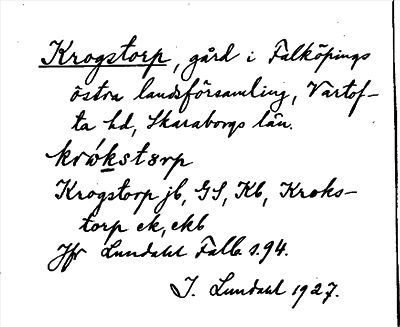 Krogstorp, gård i Falköpings
östra landsförsamling, Vartof-
ta hd, Skaraborgs län.
krωkstɔrp
Krogstorp jb, GS, Kb, Kroks-
torp ek, ekb
Jfr Lundahl Falb s. 94.
I. Lundahl 1927.